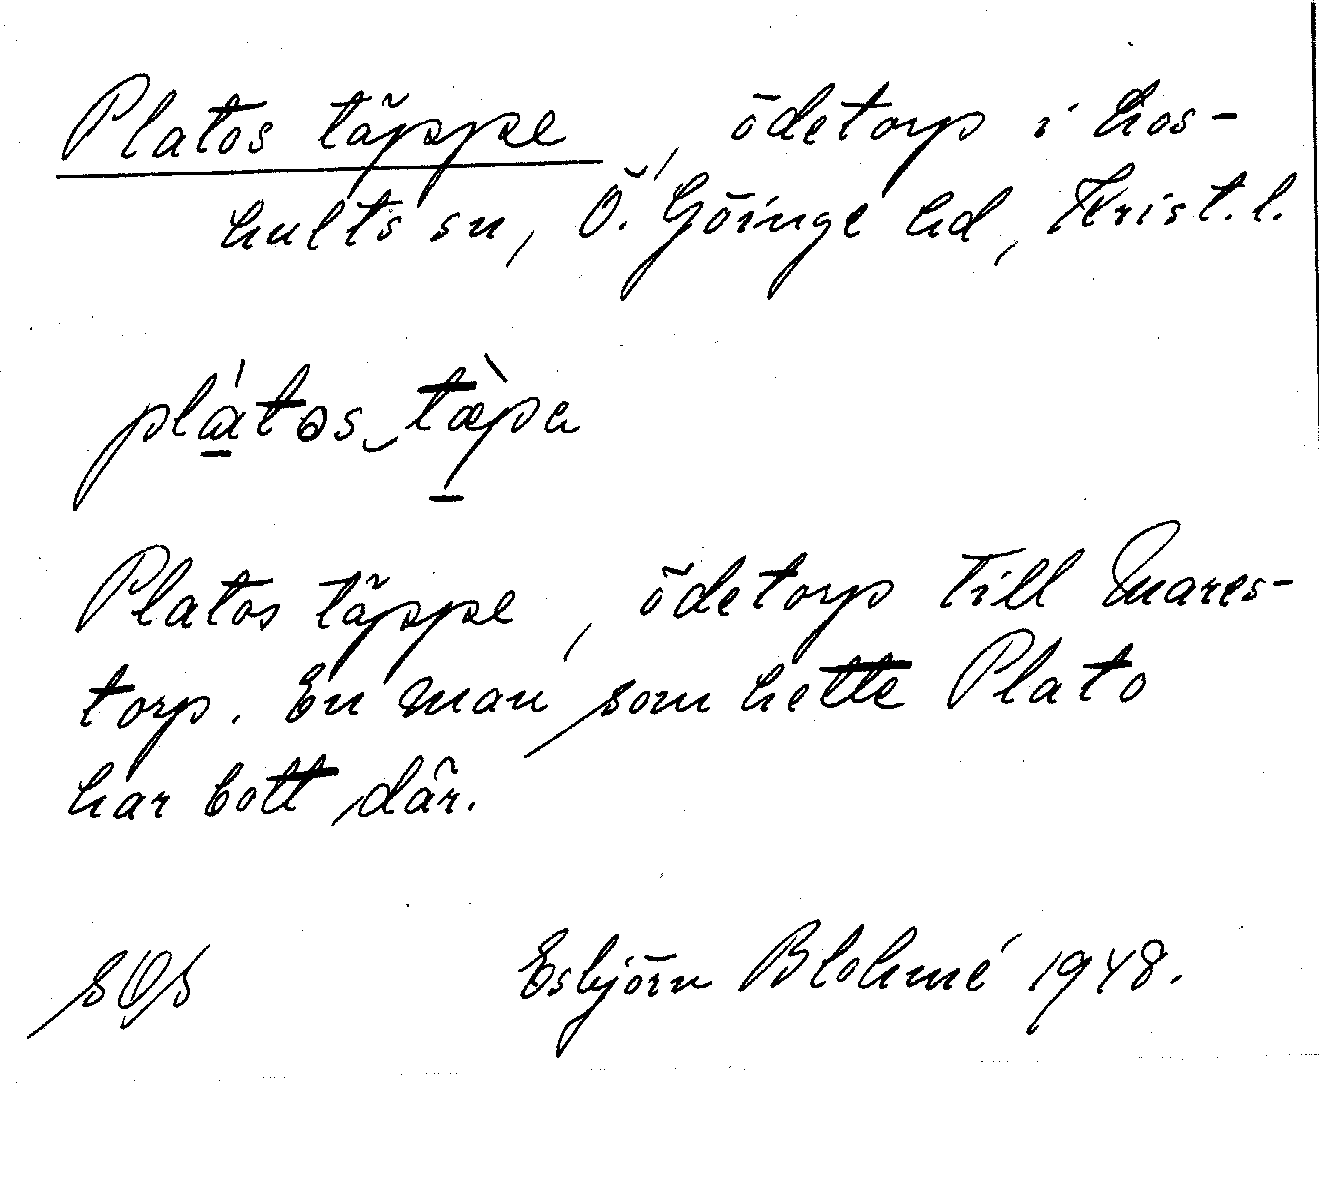 Platos täppe, ödetorp i Los-
hults sn, Ö. Göinge hd, Krist. l.
Platos täppe, ödetorp till Mares-
torp. En man som hette Plato
har bott där.
Esbjörn Blohmé 1948.